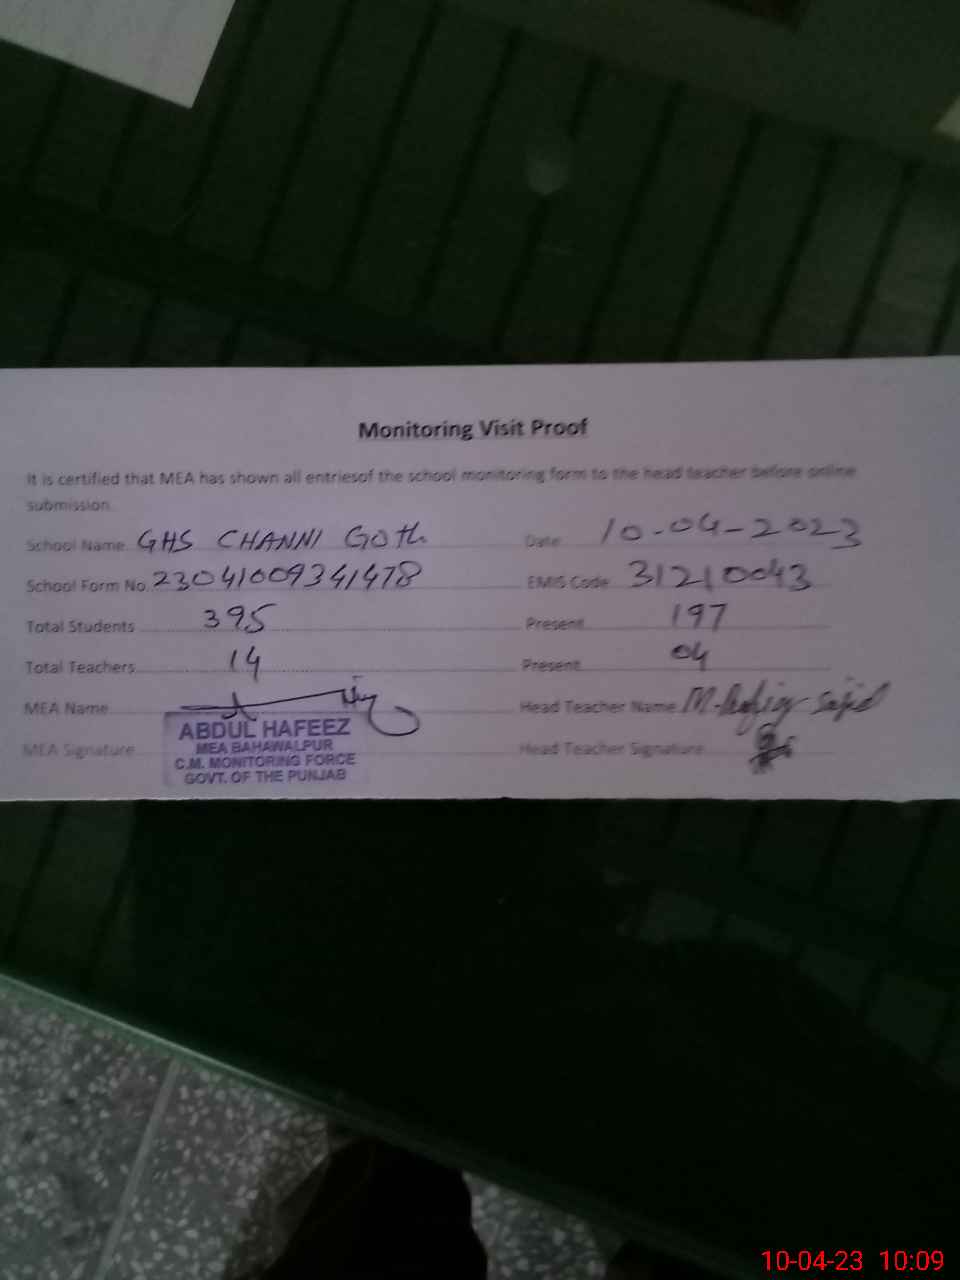 Monitoring Visit Proof
It is certified that MEA has shown all entriesof the school monitoring form to the head teacher before online
submission.
School Name GHS CHANNI GOTH Date 10-04-2023
School Form No. 23041009341478 EMIS Code 31210043
Total Students 395 Present 197
Total Teachers 14 Present 04
MEA Name Head Teacher Name M. Hafiz Sajid
MEA Signature Head Teacher Signature
ABDUL HAFEEZ
MEA BAHAWALPUR
C.M. MONITORING FORCE
GOVT. OF THE PUNJAB
10-04-23 10:09